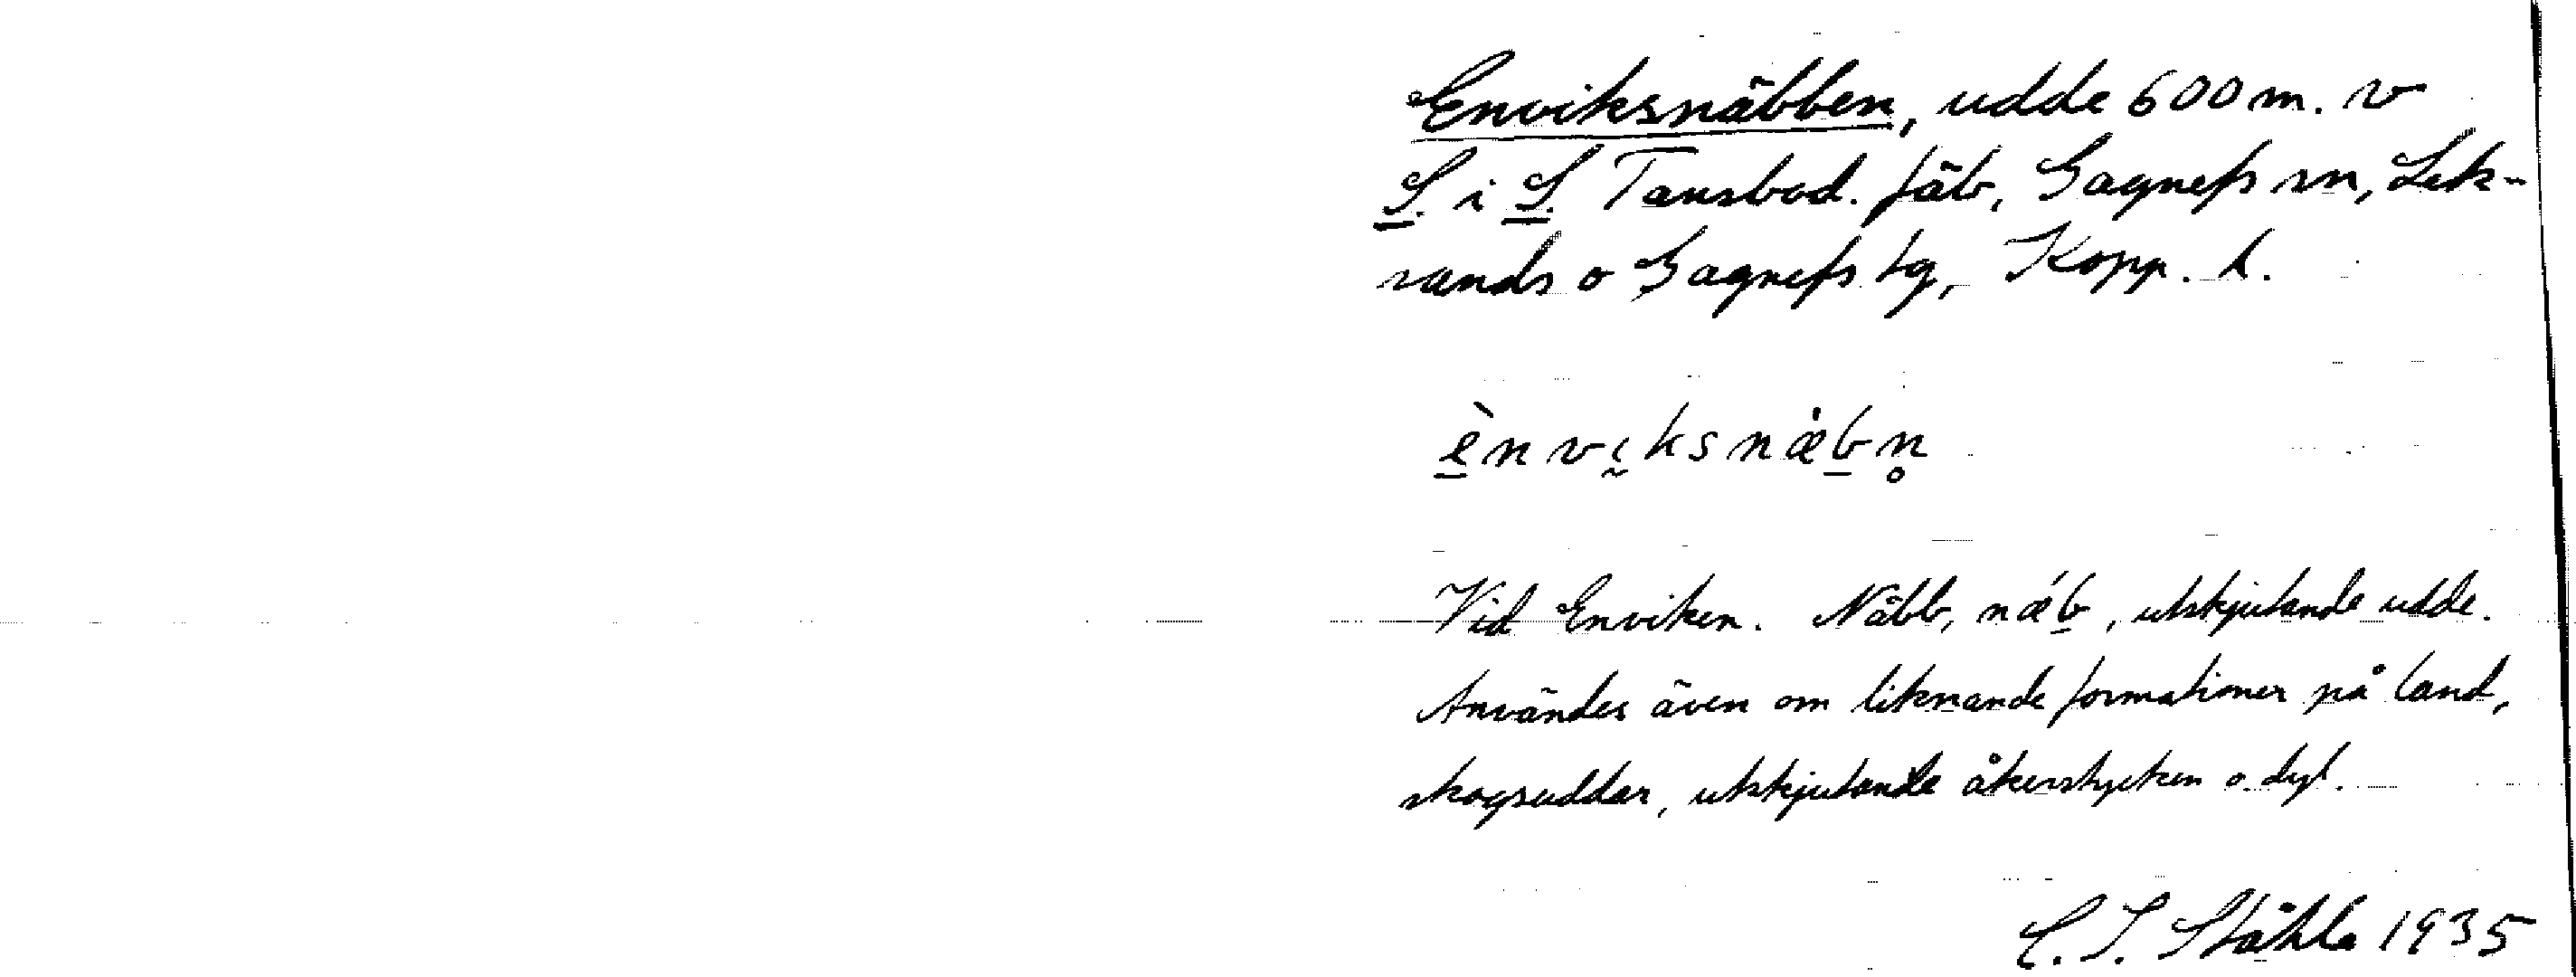 Enviksnäbben, udde 600 m. v
S. i S. Tansbod. fäb, Gagnefs sn, Lek-
sands o Gagnefs tg, Kopp. l.
è̱nvɩ̰ksnæ̀ḇn̥
Vid Enviken. Näbb, nǽḇ, utskjutande udde.
Användes även om liknande formationer på land,
skogsuddar, utskjutande åkerstycken o dyl.
C. I. Ståhle 1935